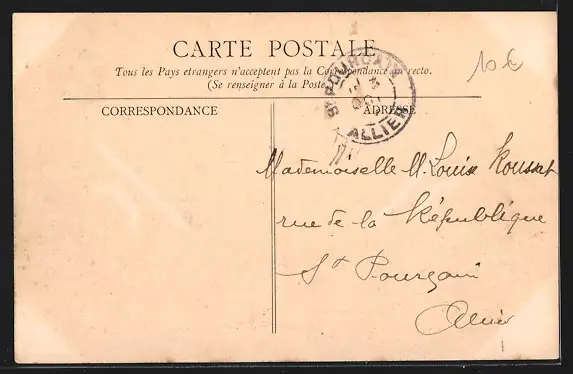 CARTE POSTALE
Tous les Pays etrangers n'acceptent pas la Correspondance au recto.
(Se renseigner à la Poste)
CORRESPONDANCE
ADRESSE
ST POURÇAIN
ALLIER
10 €
Mademoiselle M. Louise Rousset
rue de la République
St Pourçain
Allier